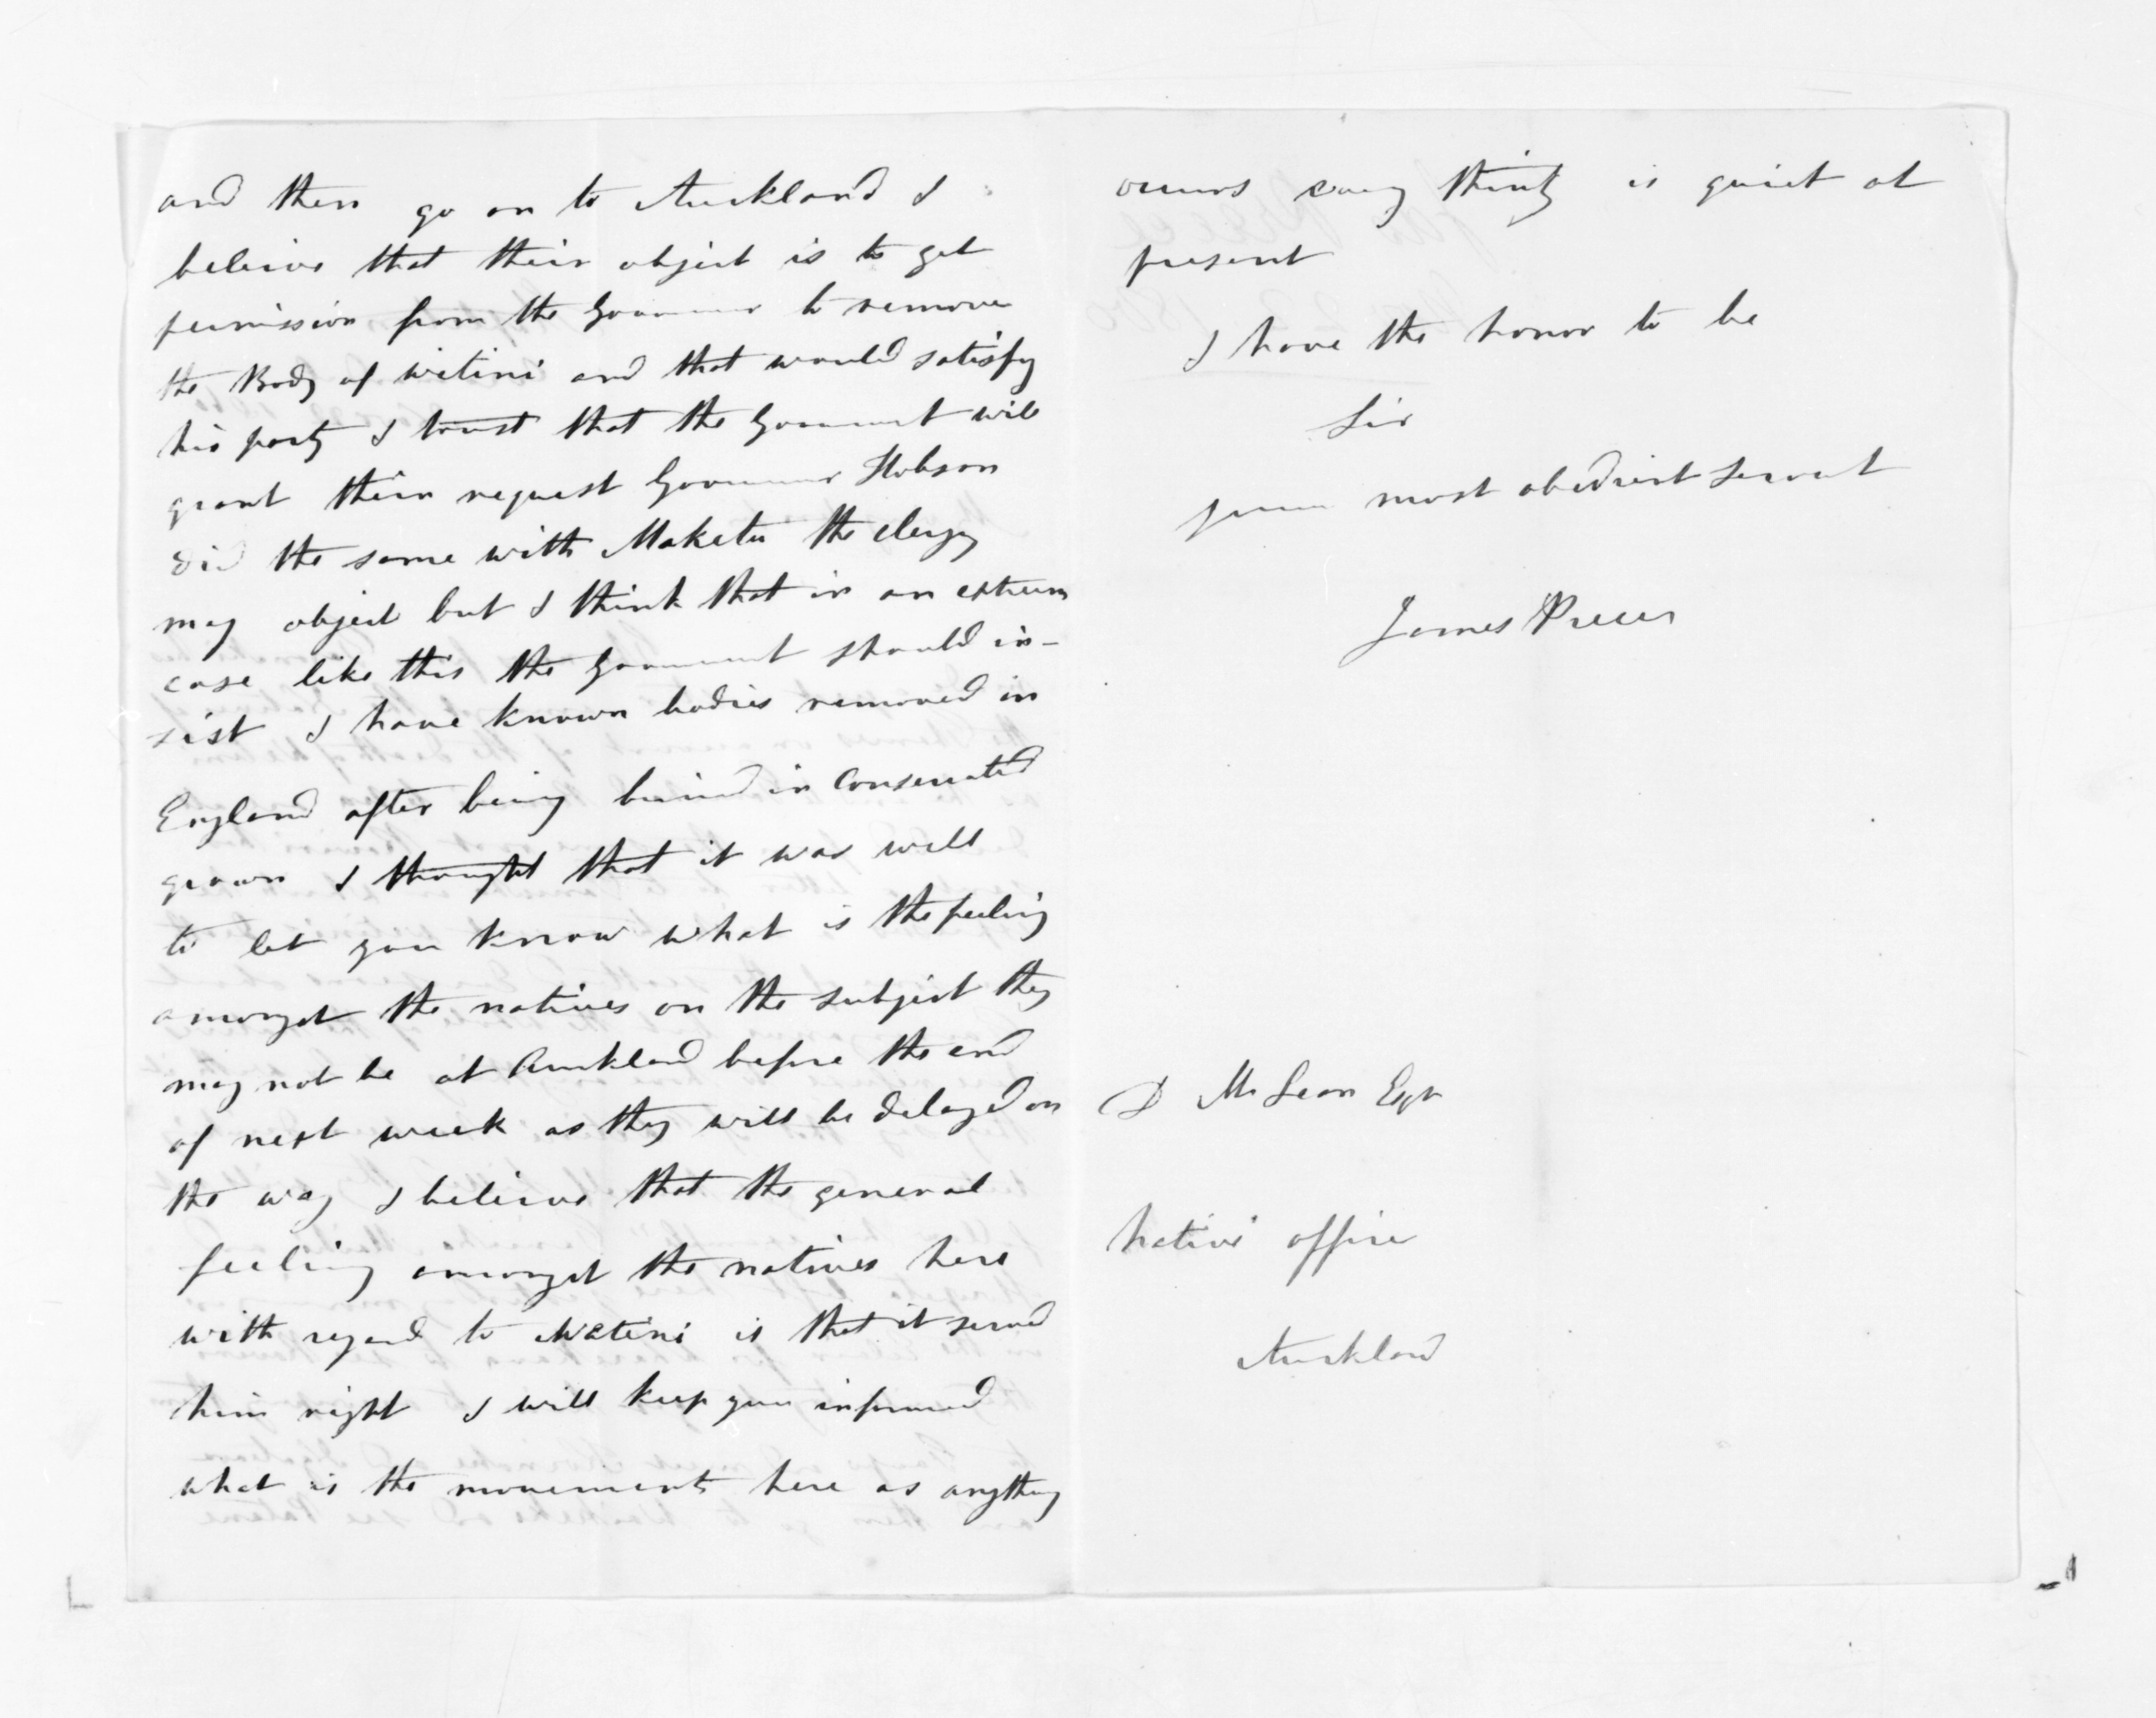 and then go on to Auckland I
believe that their object is to get
permission from the Governor to remove
the Body of Wetini and that would satisfy
his party I trust that the Government will
grant their request Governor Hobson
did the same with Maketu the clergy
may object but I think that in an extreem
case like this the Government should in-
sist I have known bodies removed in
England after being buried in Consecrated
groun I thought that it was well
to let you know what is the feeling
amongst the natives on the subject they
may not be at Auckland before the end
of next week as they will be delayed on
the way I believe that the general
feeling amongst the natives here
with regard to Wetini is that it served
him right I will keep you informed
what is the movements here as anything
occurs every thing is quiet at
present
I have the honor to be
Sir
your most obedient servant
James Preece
D McLean Esqr
Native office
Auckland